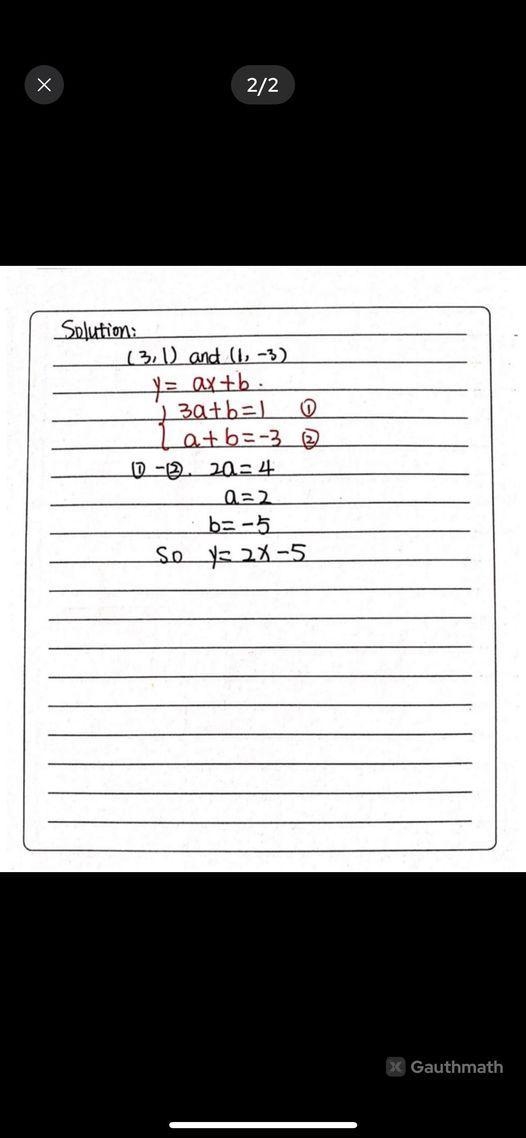 2/2
Solution:
(3,1) and (1, -3)
y= ax+b.
3a+b=1 ①
a+b=-3 ②
①-②. 2a=4
a=2
b=-5
So y=2x-5
Gauthmath